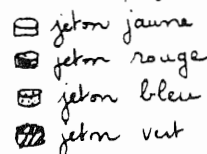 jeton jaune
jeton rouge
jeton bleu
jeton vert